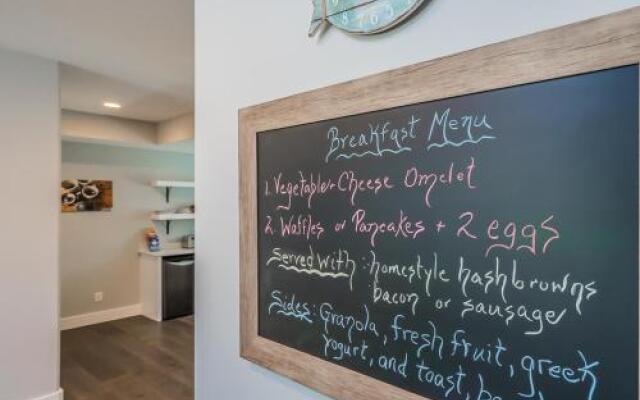 Breakfast Menu
1. Vegetable + Cheese Omelet
2. Waffles or Pancakes + 2 eggs
Served with: homestyle hashbrowns
bacon or sausage
Sides: Granola, fresh fruit, greek
yogurt, and toast,